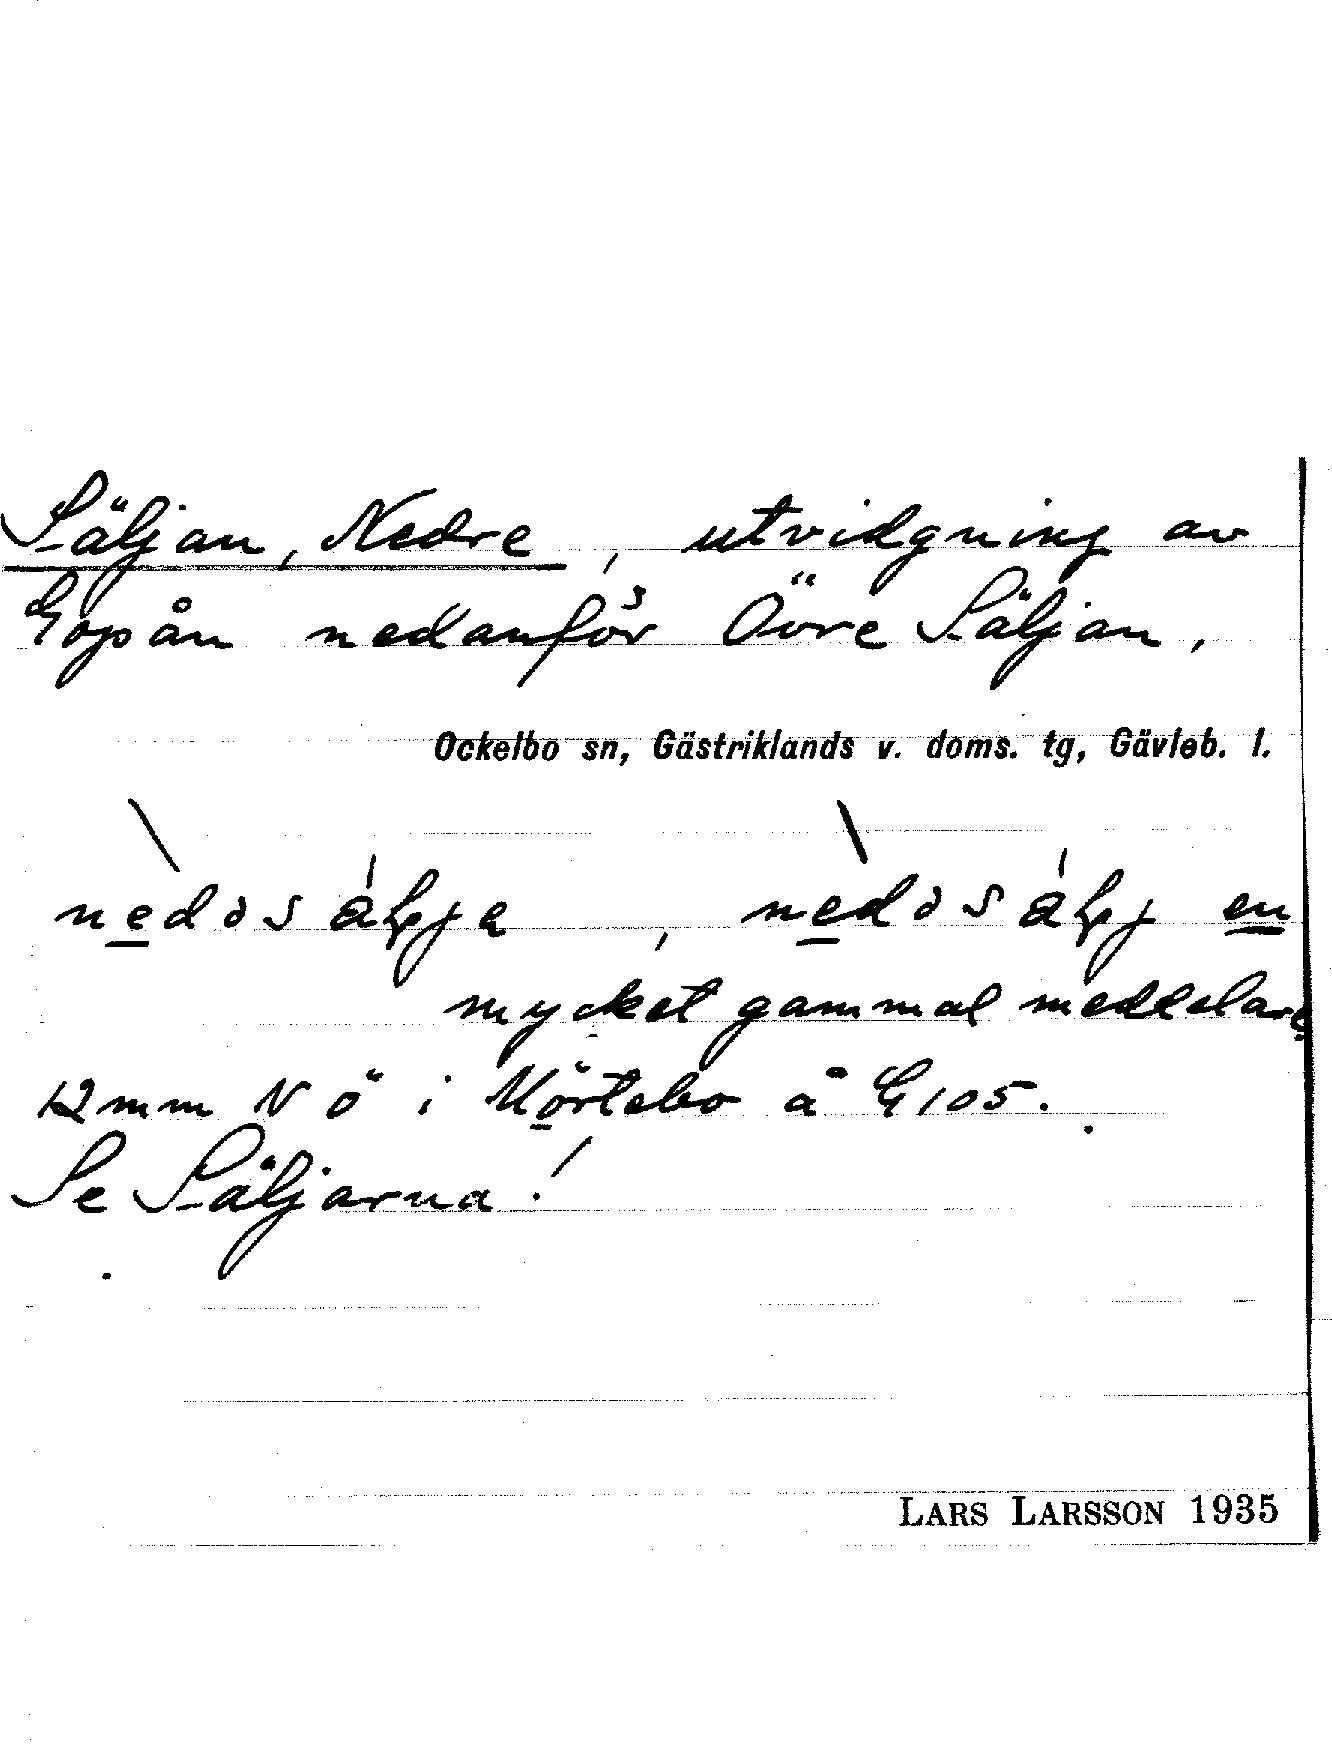 Säljan, Nedre, utvidgning av
Gopån nedanför Övre Säljan,
Ockelbo sn, Gästriklands v. doms. tg, Gävleb. l.
mycket gammal meddelare
12 mm N ö i Mörtebo å G 105.
Se Säljarna!
LARS LARSSON 1935